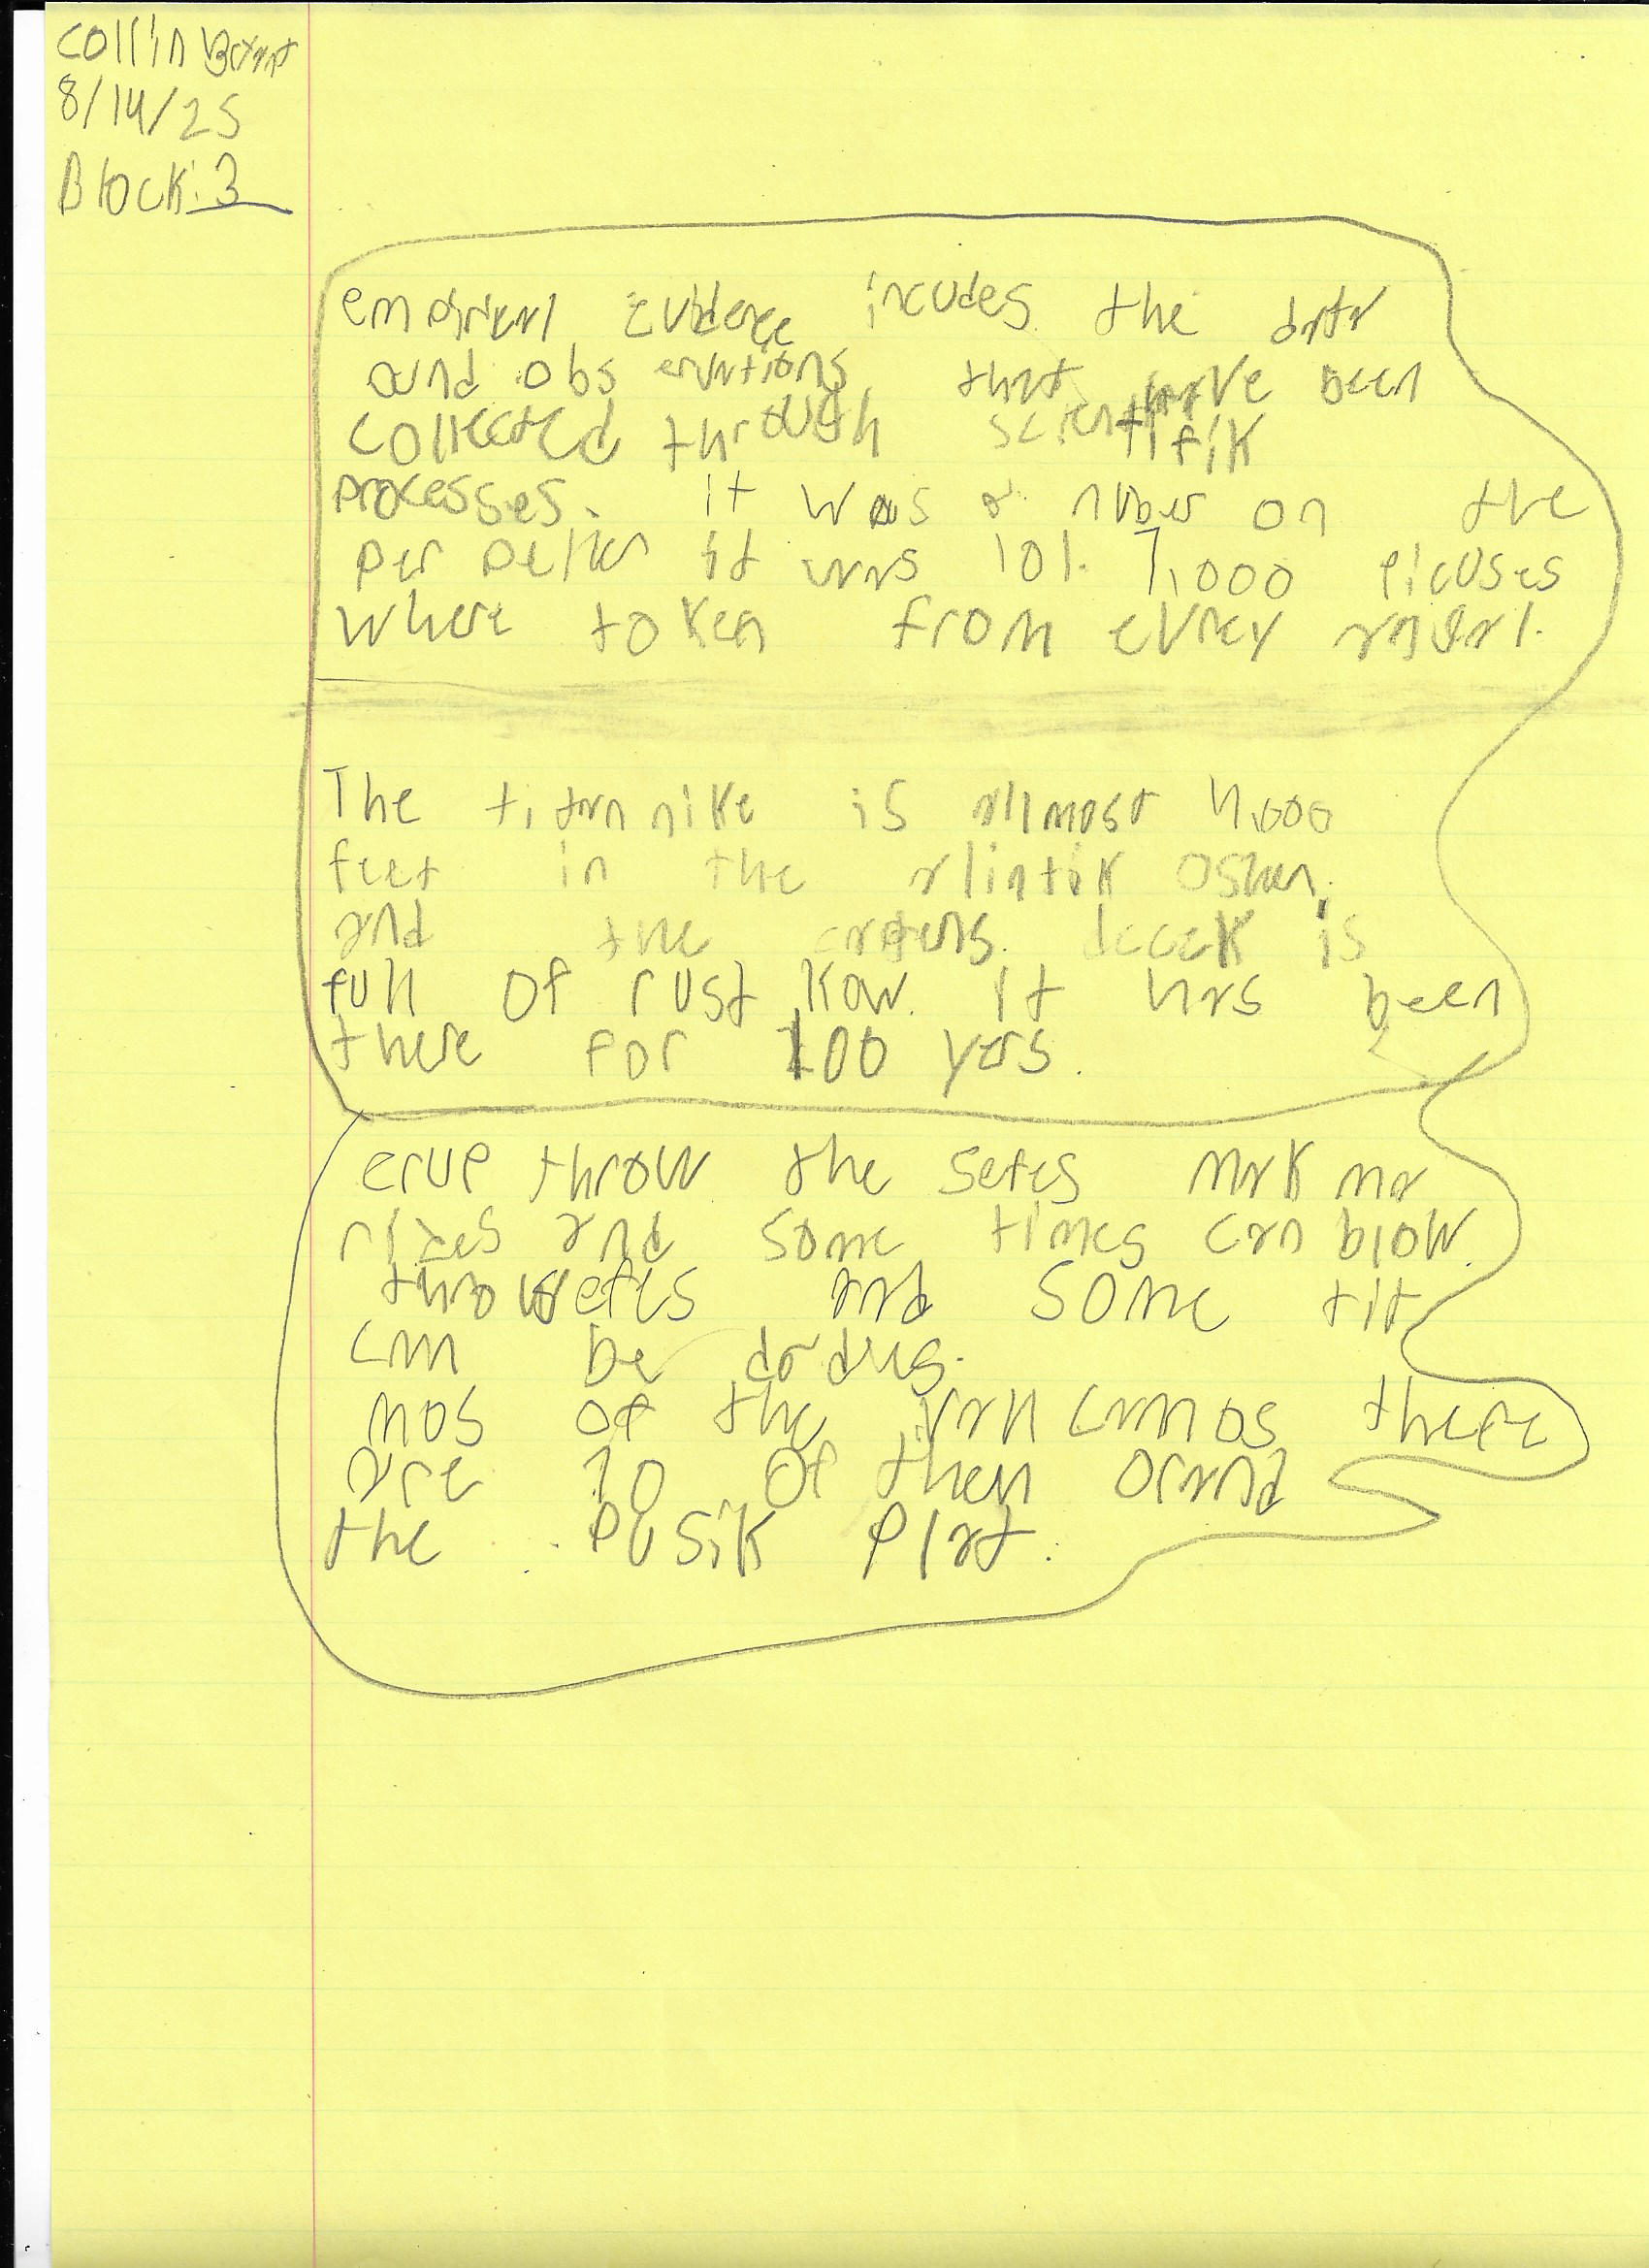 Collin
8/14/25
Block: 3
empirical Evidence incudes the data
aund obs ervations that have been
collected through scientifik
processes. it was a nuber on the
per peller it was 101. 7,000 picuses
where token from evrey
The titannike is allmost 4,000
feet in the alintik oshen,
and the deceK is
full of rust Kow. it has been
there for 100 yers.
erup throw the setes mak ma
rizes and some times can blow
throw setes and some tit
can be
mos of the there
are 10 of then orand
the pusik plat.